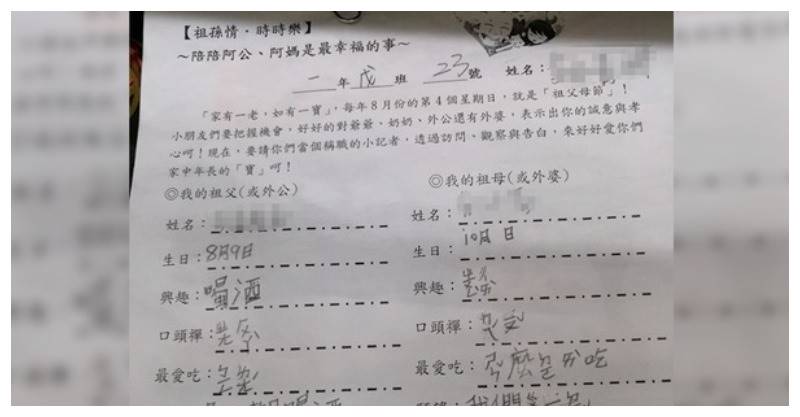 【祖孫情‧時時樂】
～陪陪阿公、阿媽是最幸福的事～
一年戊班 23號 姓名：
「家有一老，如有一寶」，每年8月份的第4個星期日，就是「祖父母節」！
小朋友們要把握機會，好好的對爺爺、奶奶、外公還有外婆，表示出你的誠意與孝
心呵！現在，要請你們當個稱職的小記者，透過訪問、觀察與告白，來好好愛你們
家中年長的「寶」呵！
◎我的祖父(或外公)
姓名：
生日：8月9日
興趣：喝酒
口頭禪：
最愛吃：
喝酒
◎我的祖母(或外婆)
姓名：
生日：10月 日
興趣：
口頭禪：
最愛吃：什麼都吃
我們